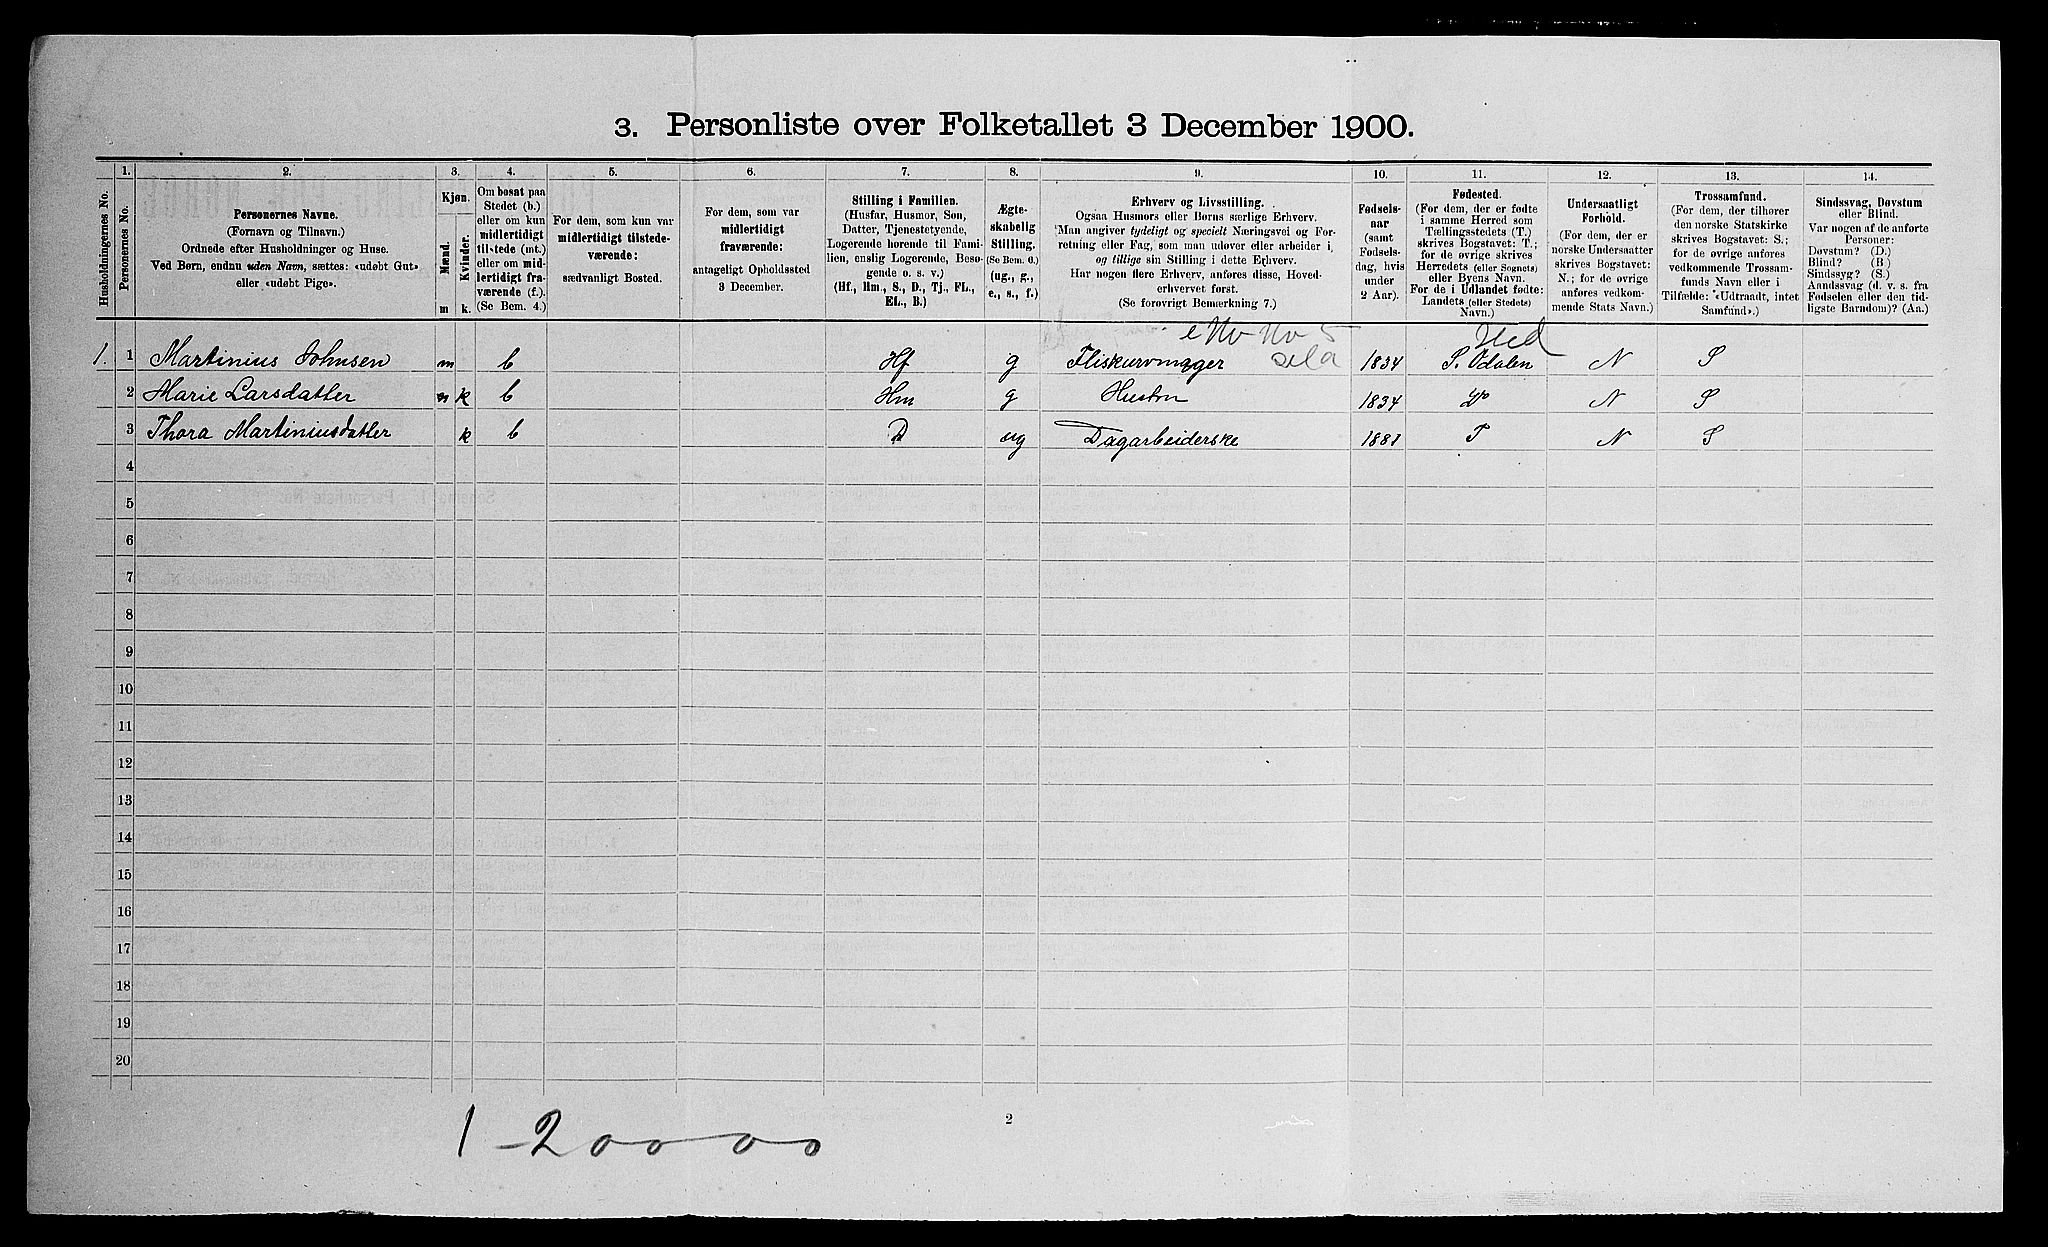 3. Personliste over Folketallet 3 December 1900.
1. 2. 3. 4. 5. 6. 7. 8. 9. 10. 11. 12. 13. 14.
Husholdningernes No.
Personernes No.
Personernes Navne.
(Fornavn og Tilnavn.)
Ordnede efter Husholdninger og Huse.
Ved Børn, endnu uden Navn, sættes: «udøbt Gut»
eller «udøbt Pige».
Kjøn.
Mænd.
Kvinder.
m k.
Om bosat paa
Stedet (b.)
eller om kun
midlertidigt
tilstede (mt.)
eller om mid-
lertidigt fra-
værende (f.).
(Se Bem. 4.)
For dem, som kun var
midlertidigt tilstede-
værende:
sædvanligt Bosted.
For dem, som var
midlertidigt
fraværende:
antageligt Opholdssted
3 December.
Stilling i Familien.
(Husfar, Husmor, Søn,
Datter, Tjenestetyende,
Logerende hørende til Fami-
lien, enslig Logerende, Besø-
gende o. s. v.)
(Hf., Hm., S., D., Tj., FL.,
EL., B.)
Ægte-
skabelig
Stilling.
(Se Bem. 6.)
(ug., g.,
e., s., f.)
Erhverv og Livsstilling.
Ogsaa Husmors eller Børns særlige Erhverv.
Man angiver tydeligt og specielt Næringsvei og For-
retning eller Fag, som man udøver eller arbeider i,
og tillige sin Stilling i dette Erhverv.
Har nogen flere Erhverv, anføres disse, Hoved-
erhvervet først.
(Se forøvrigt Bemærkning 7.)
Fødsels-
aar
(samt
Fødsels-
dag, hvis
under
2 Aar).
Fødested.
(For dem, der er fødte
i samme Herred som
Tællingsstedets (T.)
skrives Bogstavet: T.;
for de øvrige skrives
Herredets (eller Sognets)
eller Byens Navn.
For de i Udlandet fødte:
Landets (eller Stedets)
Navn.)
Undersaatligt
Forhold.
(For dem, der er
norske Undersaatter
skrives Bogstavet:
N.; for de øvrige
anføres vedkom-
mende Stats Navn.)
Trossamfund.
(For dem, der tilhører
den norske Statskirke
skrives Bogstavet: S.;
for de øvrige anføres
vedkommende Trossam-
funds Navn eller i
Tilfælde: «Udtraadt, intet
Samfund».)
Sindssvag, Døvstum
eller Blind.
Var nogen af de anførte
Personer:
Døvstum? (D.)
Blind? (B.)
Sindssyg? (S.)
Aandssvag (d. v. s. fra
Fødselen eller den tid-
ligste Barndom)? (Aa.)
Hed
1. 1 Martinius Johnsen m b Hf g Fliskurvmager 1834 S. Odalen N S
2 Marie Larsdatter k b Hm g Hustru 1834 N S
3 Thora Martiniusdatter k b D ug Dagarbeiderske 1881 T N S
4
5
6
7
8
9
10
11
12
13
14
15
16
17
18
19
20
2
1 - 2